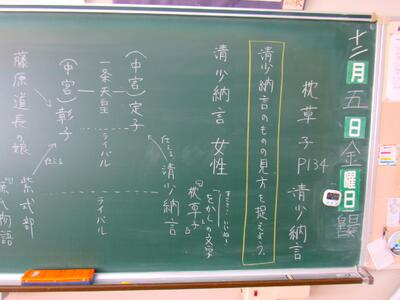 十二月五日金曜日
枕草子 P134 清少納言
清少納言のものの見方を捉えよう。
清少納言 女性
(中宮)定子
仕える
清少納言
『枕草子』
をかしの文学
一条天皇
ライバル
ライバル
(中宮)彰子
仕える
紫式部
藤原道長の娘